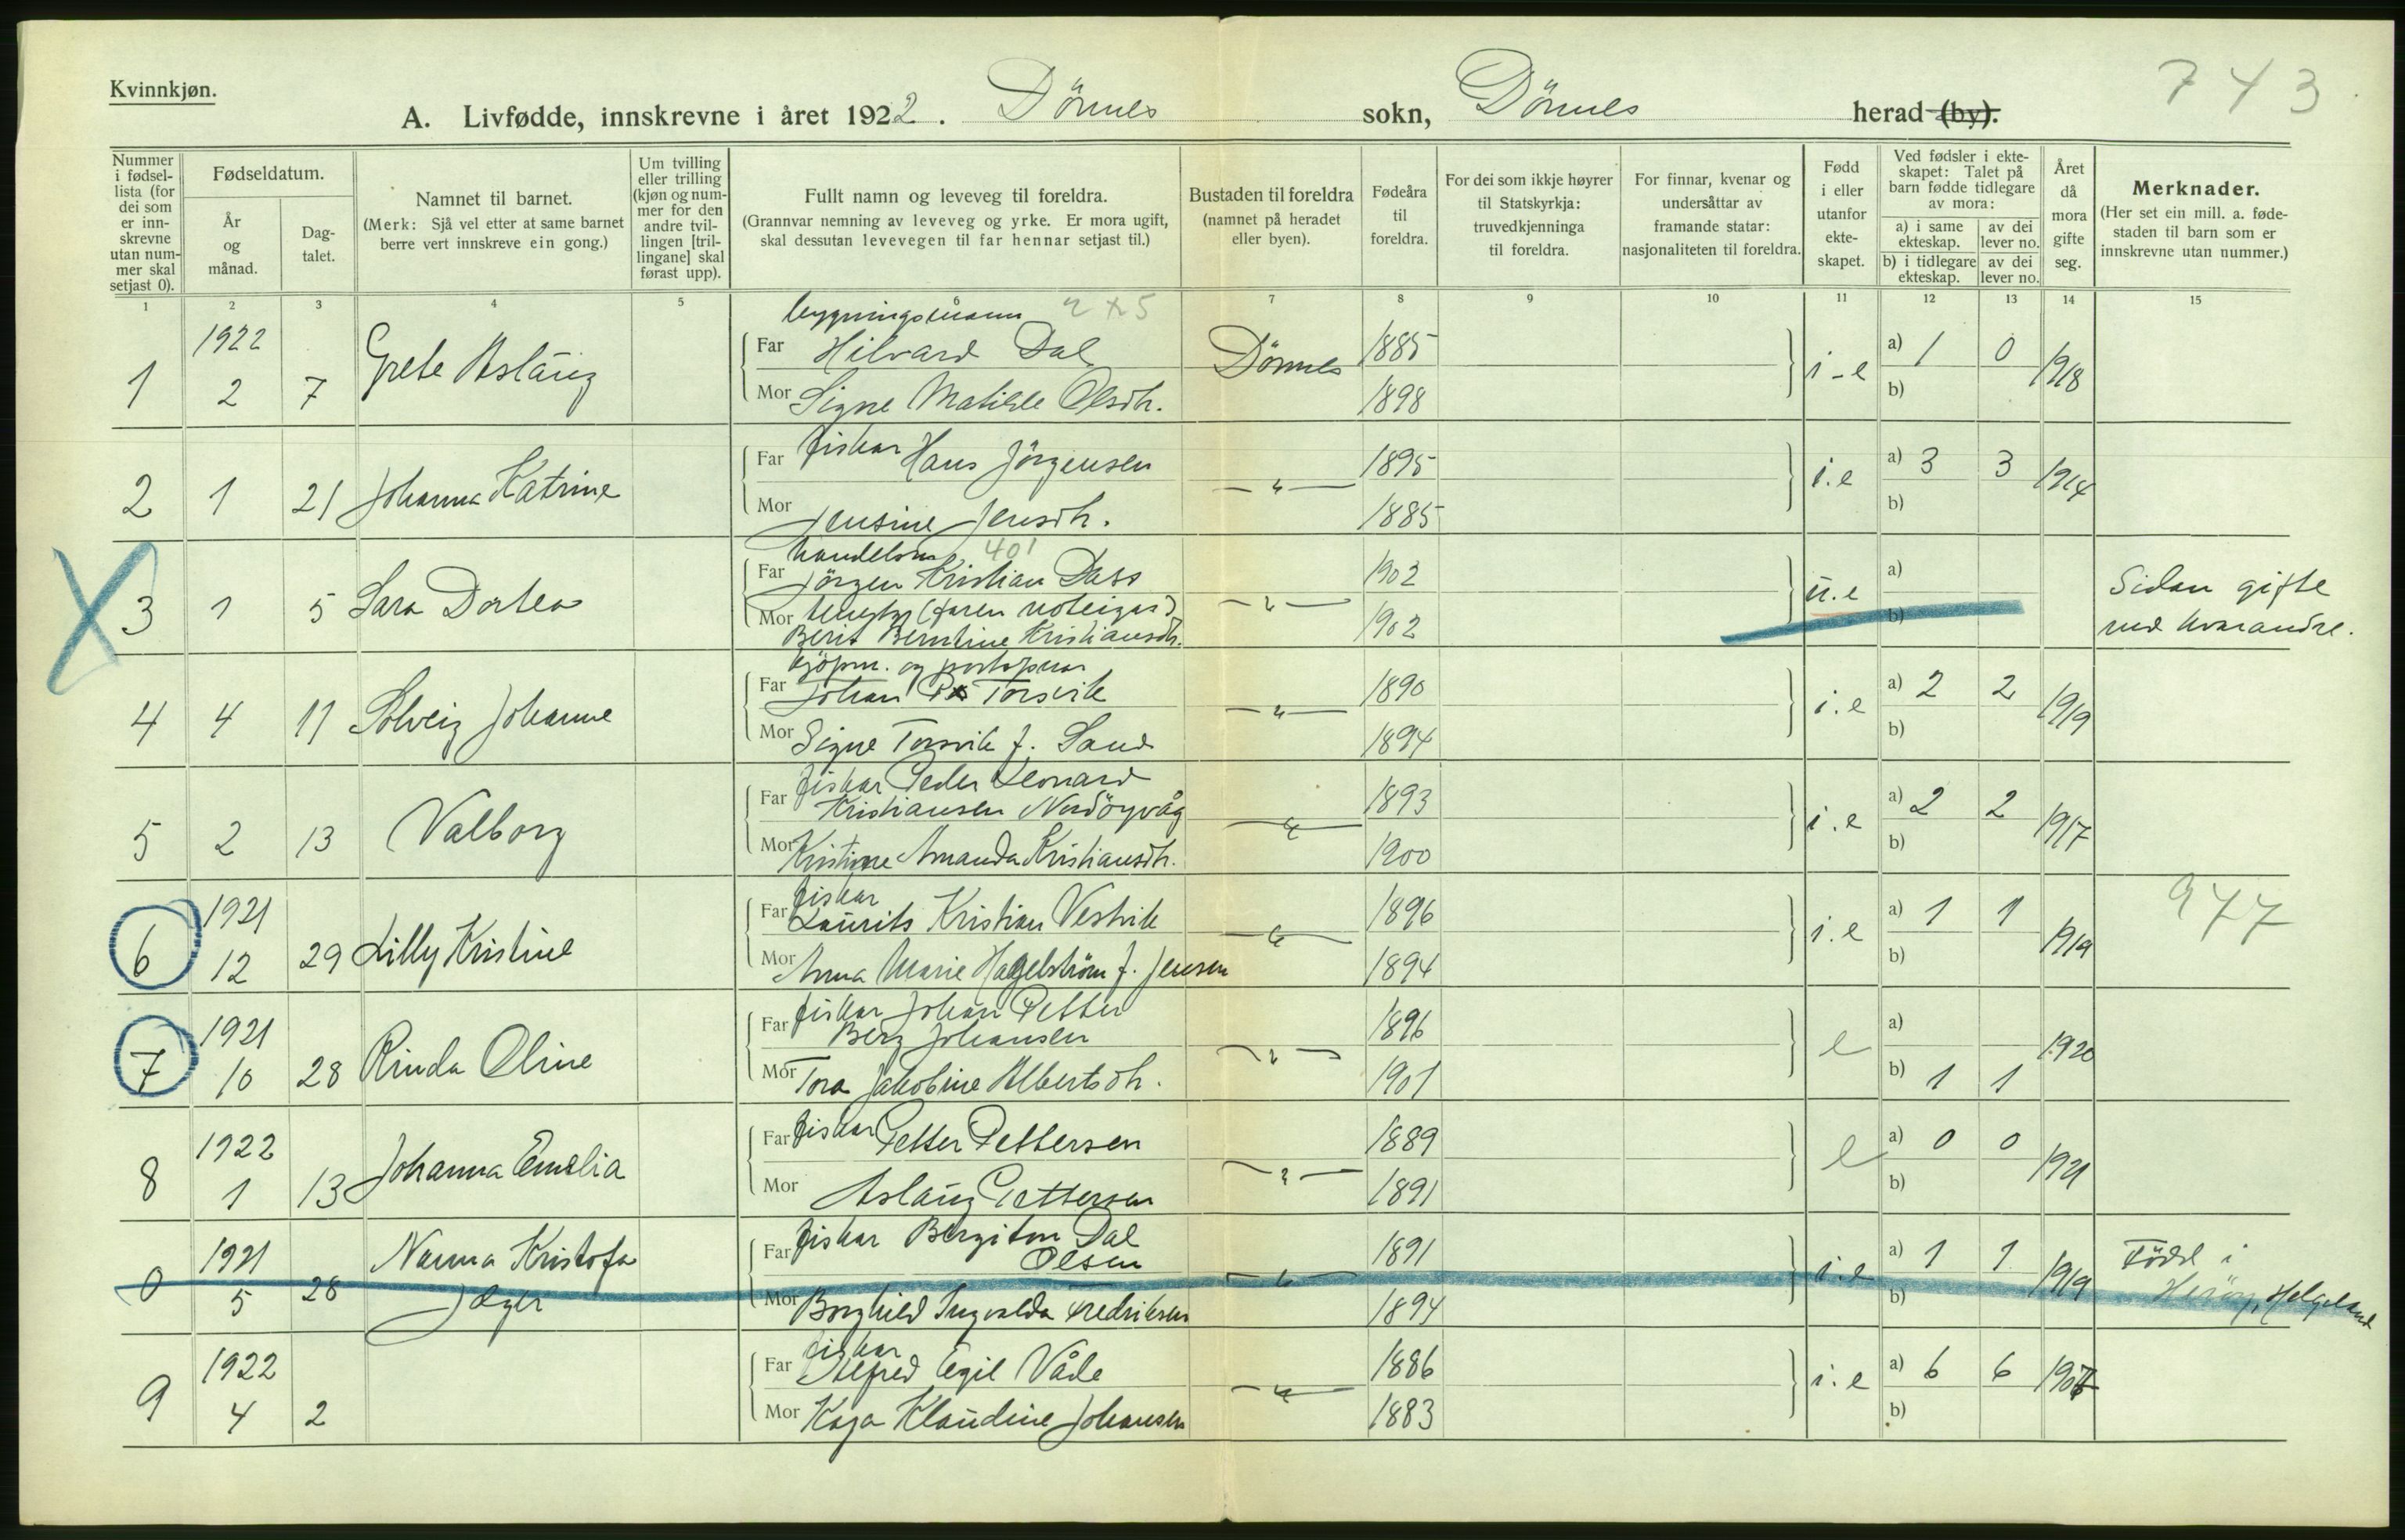 Kvinnkjøn.
743
A. Livfødde, innskrevne i året 1922. Dönnes sokn, Dönnes herad (by).
Nummer i fødsel-lista (for dei som er inn-skrevne utan num-mer skal setjast 0).
Fødseldatum.
År og månad.
Dag-talet.
Namnet til barnet.
(Merk: Sjå vel etter at same barnet berre vert innskreve ein gong.)
Um tvilling eller trilling (kjøn og num-mer for den andre tvil-lingen [tril-lingane] skal førast upp).
Fullt namn og leveveg til foreldra.
(Grannvar nemning av leveveg og yrke. Er mora ugift, skal dessutan levevegen til far hennar setjast til.)
Bustaden til foreldra (namnet på heradet eller byen).
Fødeåra til foreldra.
For dei som ikkje høyrer til Statskyrkja: truvedkjenninga til foreldra.
For finnar, kvenar og undersåttar av framande statar: nasjonaliteten til foreldra.
Fødd i eller utanfor ekte-skapet.
Ved fødsler i ekte-skapet: Talet på barn fødde tidlegare av mora:
a) i same ekteskap.
av dei lever no.
b) i tidlegare ekteskap.
av dei lever no.
Året då mora gifte seg.
Merknader.
(Her set ein mill. a. føde-staden til barn som er innskrevne utan nummer.)
1 2 3 4 5 7 8 9 10 11 12 13 14 15
bygningsmann
1922 Far Hilvard Dal Dönnes 1885 a) 1 0
1 2 7 Grete Aslaug i-e 1918
Mor Signe Matilde Olsdtr. 1898 b)
Far fiskar Hans Jörgensen 1895 a) 3 3
2 1 21 Johanna Katrine -"- i.e 1914
Mor Jensine Jensdtr. 1885 b)
handelsm. 401
Far Jörgen Kristian Dass 1902 a)
3 1 5 Sara Dortea -"- u.e Sidan gifte
Mor (faren noteigar) b) med kvarandre.
Berit Berntine Kristiansdtr. 1902
kjöpm. og postopnar
Far Johan Torsvik 1890 a) 2 2
4 4 11 Solveig Johanne -"- i.e 1919
Mor Signe Torsvik f. Sand 1894 b)
Far fiskar Peder Leonard
Kristiansen Nordöyvåg 1893 a) 2 2
5 2 13 Valborg -"- i.e 1917
Mor Kristine Amanda Kristiansdtr. 1900 b)
fiskar
1921 Far Laurits Kristian Vestvik 1896 a) 1 1 977
6 12 29 Lilly Kristine -"- i.e 1919
Mor Anna Marie Hagelström f. Jensen 1894 b)
1921 Far fiskar Johan Petter
Berg Johansen 1896 a)
7 10 28 Rinda Oline -"- e 1920
Mor Tora Jakobine Albertsdtr. 1901 b) 1 1
1922 Far fiskar Petter Pettersen 1889 a) 0 0
8 1 13 Johanna Emelia -"- e 1921
Mor Aslaug Pettersen 1891 b)
1921 Nanna Kristofa Far fiskar Bergiton Dal
Olsen 1891 a) 1 1 Född i
0 5 28 -"- i.e 1919 Heröy, Helgeland
Mor Borghild Ingvalda Fredriksen 1894 b)
fiskar
1922 Far Alfred Egil Våde 1886 a) 6 6
9 4 2 -"- i.e 1907
Mor Kaja Klaudine Johansen 1883 b)